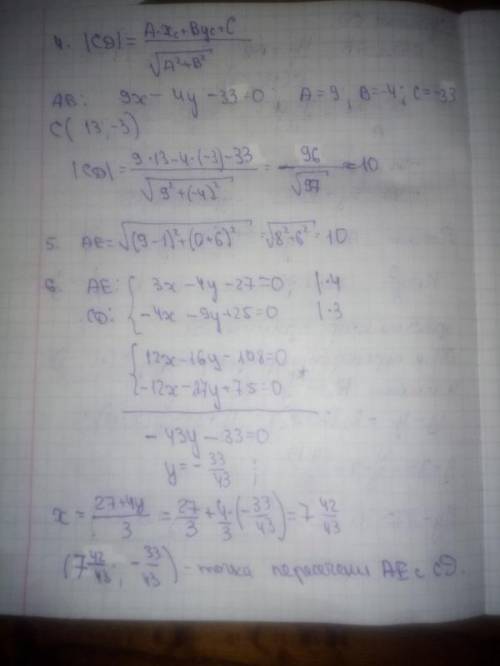 4. |CD| = (A·x_c + By_c + C) / √(A²+B²)
AB: 9x - 4y - 33 = 0; A = 9, B = -4; C = -33
C(13; -3)
|CD| = (9·13 - 4·(-3) - 33) / √(9²+(-4)²) = 96/√97 ≈ 10
5. AE = √((9-1)²+(0+6)²) = √(8²+6²) = 10
6. AE: { 3x - 4y - 27 = 0 | ·4
CD: { -4x - 9y + 25 = 0 | ·3
{ 12x - 16y - 108 = 0
{ -12x - 27y + 75 = 0 +
- 43y - 33 = 0
y = - 33/43 ;
x = (27+4y)/3 = 27/3 + 4/3·(-33/43) = 7 42/43
(7 42/43; - 33/43) - точка пересечения AE с CD.